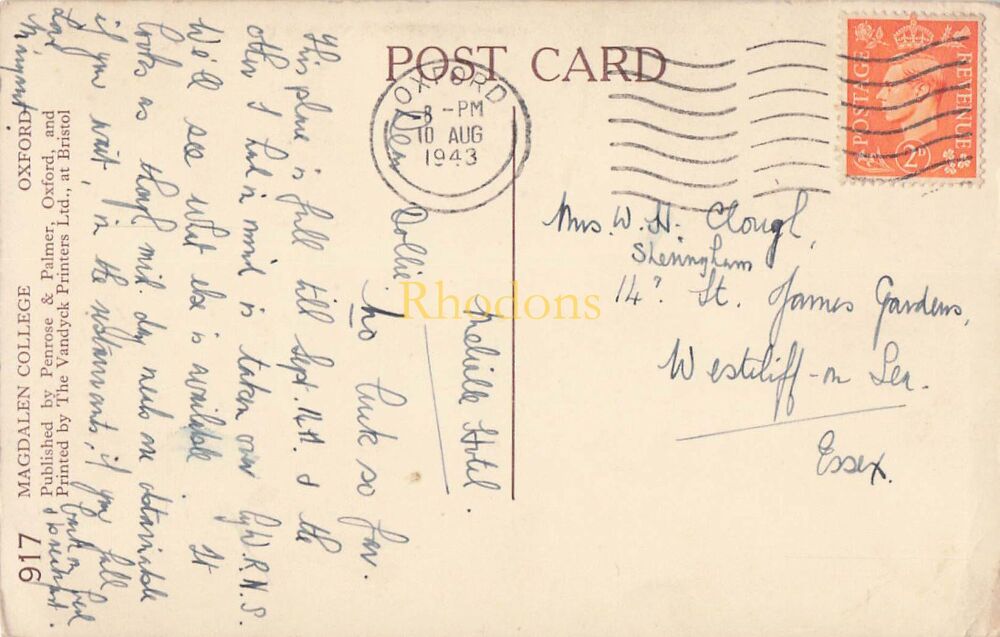 POST CARD
OXFORD
8 - PM
10 AUG
1943
POSTAGE
REVENUE
2D
Mrs. W. H. Clough,
Sheringham
14, St. James Gardens,
Westcliff-on Sea.
Essex.
Melville Hotel.
Dear Dollie
No luck so far.
This place is full till Sept. 14th. & the
other I had in mind is taken over by W.R.N.S.
We'll see what else is available. It
looks as though mid. day meals are obtainable
if you wait, in the restaurants, if you fall
back on bed
& breakfast.
Love
917
MAGDALEN COLLEGE OXFORD
Published by Penrose & Palmer, Oxford, and
Printed by The Vandyck Printers Ltd., at Bristol
Rhodons